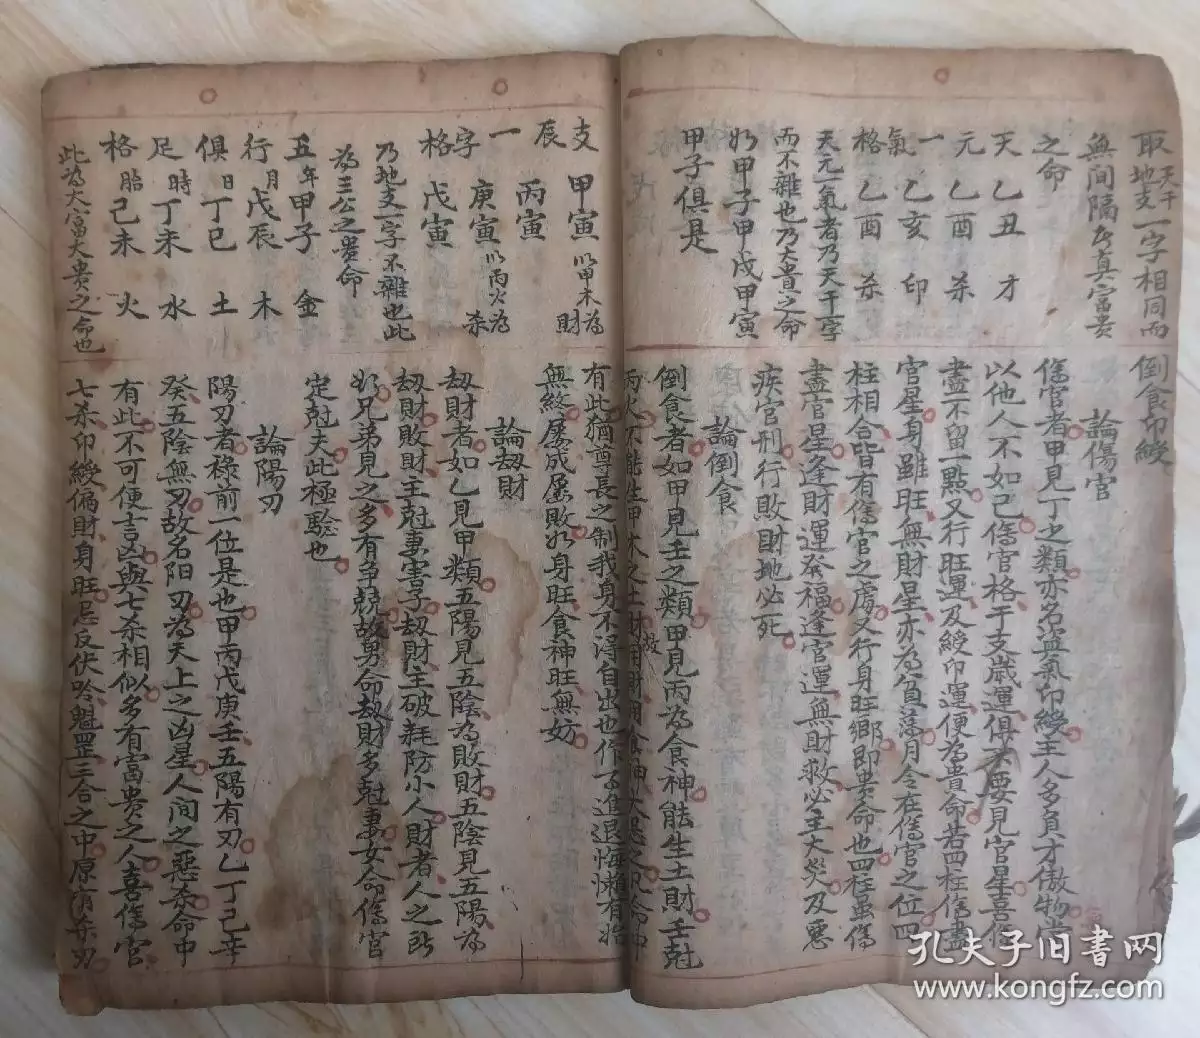 取天干地支一字相同而
無間隔者真富貴
之命
天 乙丑 才
元 乙酉 杀
一 乙亥 印
氣
格 乙酉 杀
天元一氣者乃天干一字
而不雜也乃大貴之命
如甲子甲戌甲寅
甲子俱是
倒食印綬
論傷官
傷官者甲見丁之類亦名盜氣印綬主人多負才傲物
以他人不如己傷官格干支歲運俱不要見官星喜傷
盡不留一點又行旺運及綬印運便為貴命若四柱傷盡
官星身雖旺無財星亦為負薄月令在傷官之位四
柱相合皆有傷官之處又行身旺鄉即貴命也四柱虽傷
盡官星逢財運發福逢官運無財救必主大災及惡
疾官刑行敗財地必死
論倒食
倒食者如甲見壬之類甲見丙為食神能生土財壬尅
丙火不能生甲木之土財故用財用食神大忌之
支 甲寅 以甲木為財
辰 丙寅
一 庚寅 以丙火為杀
字
格 戊寅
乃地支一字不雜也此
為三公之貴命
五 年甲子 金
行 月戊辰 木
俱 日丁巳 土
足 時丁未 水
格 胎己未 火
此為大富大貴之命也
有此猶尊長之制我身不淂自出也作事進退悔懶有始
無終屢成屢敗如身旺食神旺無妨
論刼財
刼財者如乙見甲類五陽見五陰為敗財五陰見五陽為
刼財敗財主尅妻害子刼財主破耗防小人財者人之所
如兄弟見之多有争競故男命刼財多尅妻女命傷官
定尅夫此極驗也
論陽刃
陽刃者祿前一位是也甲丙戊庚壬五陽有刃乙丁己辛
癸五陰無刃故名阳刃為天上之凶星人間之惡杀命中
有此不可便言凶與七杀相似多有富贵之人喜傷官
七杀印綬偏財身旺忌反伏吟魁罡三合之中原有杀刃
孔夫子旧書网
www.kongfz.com